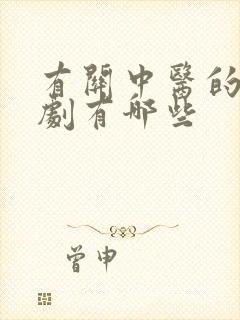 有關中醫的
劇有哪些
曾申